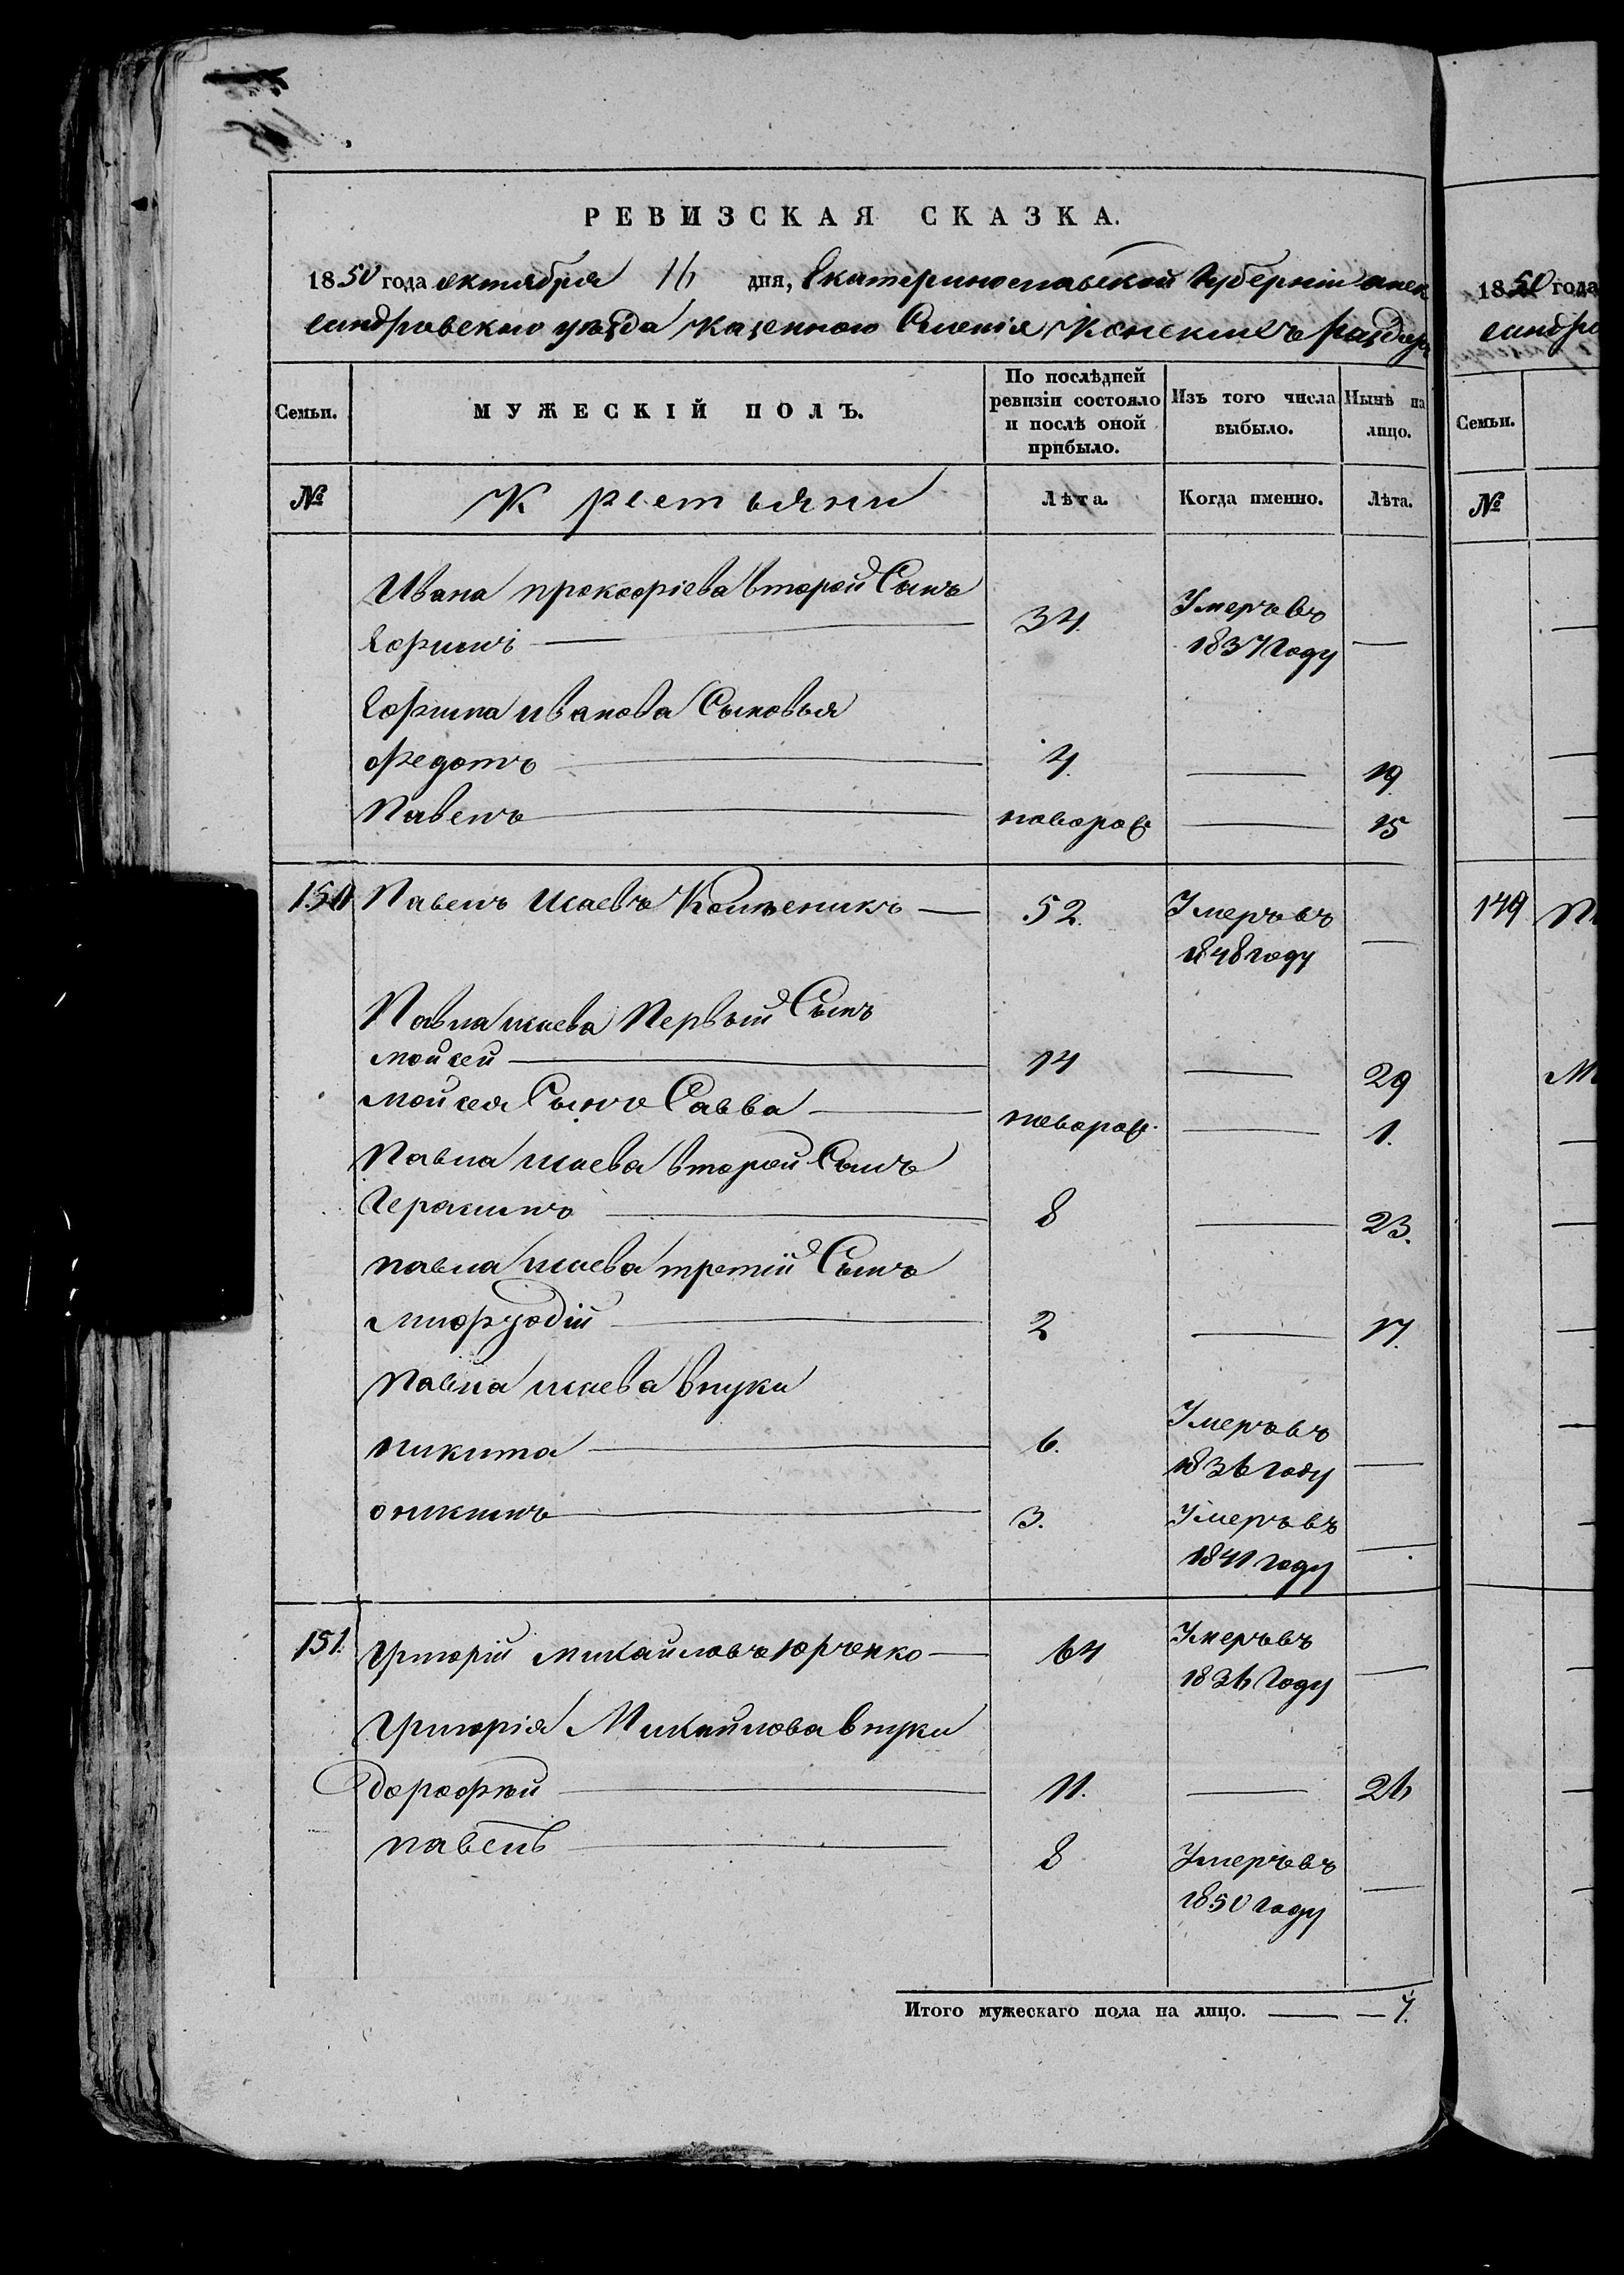 РЕВИЗСКАЯ СКАЗКА.
1850 года октября 16 дня, Екатеринославской Губерніи алек
сандровского уѣзда казенного Селенія Конскихъ раздор
Семьи. МУЖЕСКІЙ ПОЛЪ. По послѣдней ревизіи состояло и послѣ оной прибыло. Изъ того числа выбыло. Нынѣ на лицо.
№ Крестьяни Лѣта. Когда именно. Лѣта.
Ивана прокофіева второй Сынъ
Ефимъ — 34. Умеръ въ 1837 году —
Ефима иванова Сыновья
Федотъ — 4. — 19
Павелъ — новорож — 15
150 Павелъ Исаевъ — 52. Умеръ въ 1848 году —
Павла исаева Первый Сынъ
Мойсей — 14 — 29
Мойсея Сынъ Савва — новорож. — 1.
Павла исаева второй Сынъ
Герасимъ — 8 — 23.
павла исаева третій Сынъ
— 2 — 17.
Павла исаева внуки
никита — 6. Умеръ въ 1836 году —
— 3. Умеръ въ 1841 году —
151. Григорій Михайловъ Юрченко — 64 Умеръ въ 1836 Году —
Григорія Михайлова внуки
дорофѣй — 11. — 26
павелъ — 8 Умеръ въ 1850 году —
Итого мужескаго пола на лицо. — 7.
1850 года
сандро
Семьи.
№
149